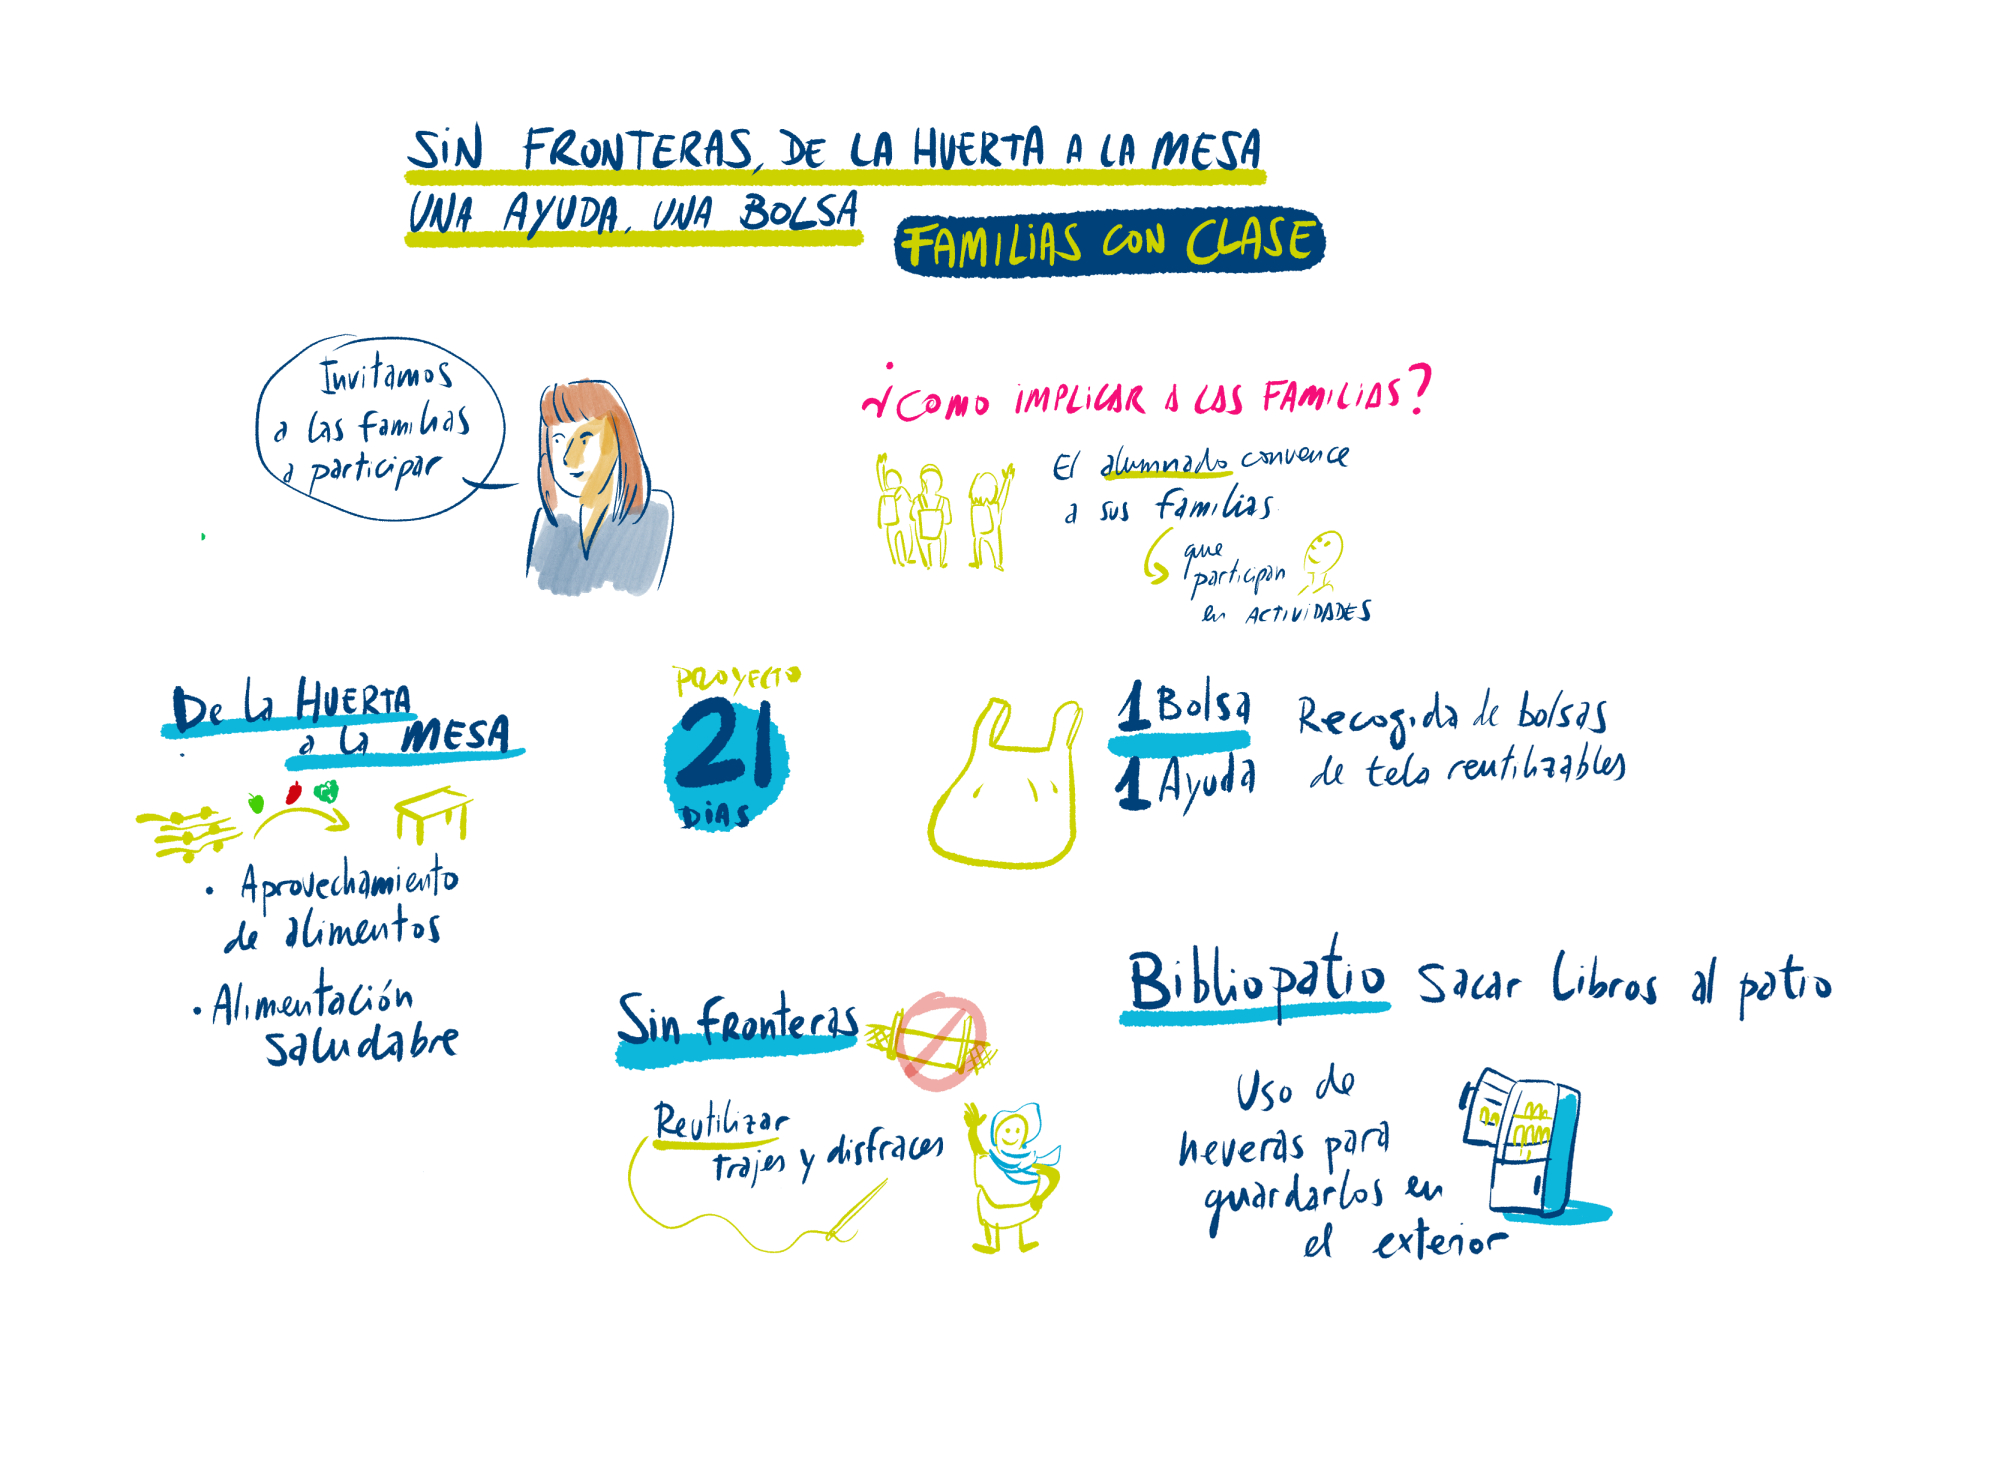 SiN FRONTERAS, DE LA HUERTA A LA MESA
UNA AYUDA, UNA BOLSA
FAMILIAS CON CLASE
Invitamos
a las familias
a participar
¿COMO IMPLICAR A LAS FAMILIAS?
El alumnado convence
a sus familias
que
participan
en ACTIVIDADES
De la HUERTA
a la MESA
• Aprovechamiento
de alimentos
• Alimentación
saludabre
PROYECTO
21
DIAS
1 Bolsa
1 Ayuda
Recogida de bolsas
de tela reutilizables
Sin fronteras
Reutilizar
trajes y disfraces
Bibliopatio Sacar libros al patio
Uso de
neveras para
guardarlos en
el exterior